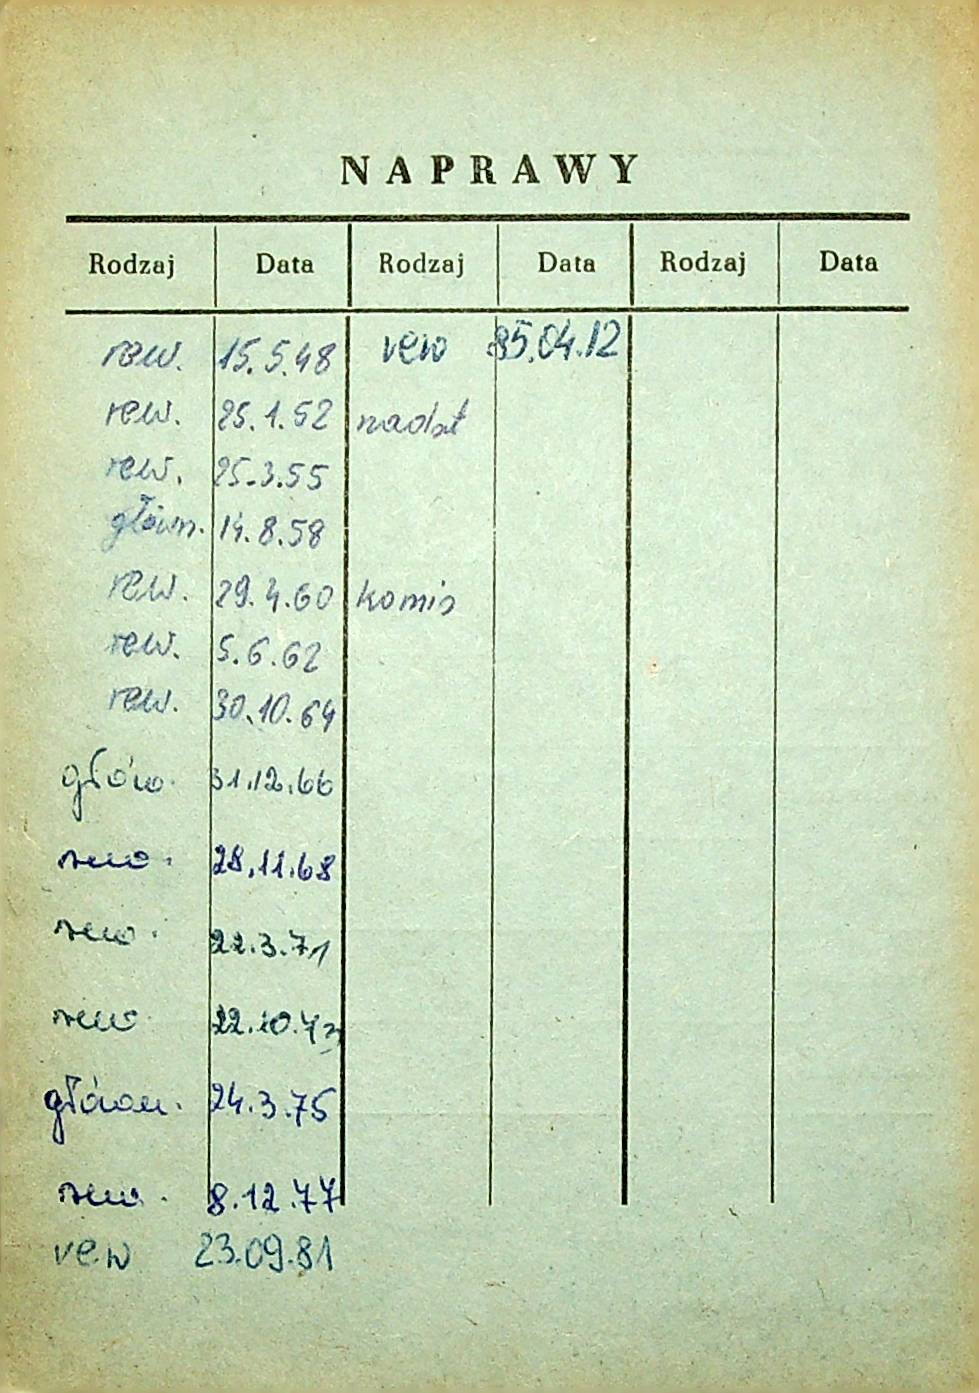 NAPRAWY
Rodzaj Data Rodzaj Data Rodzaj Data
rew. 15.5.48 rew 85.04.12
rew. 25.1.52 nadzt
rew. 25.3.55
główn. 14.8.58
rew. 29.4.60 komis
rew. 5.6.62
rew. 30.10.64
głów. 31.12.66
rew. 28.11.68
rew. 22.3.71
rew. 22.10.73
główn. 24.3.75
rew. 8.12.77
rew 23.09.81